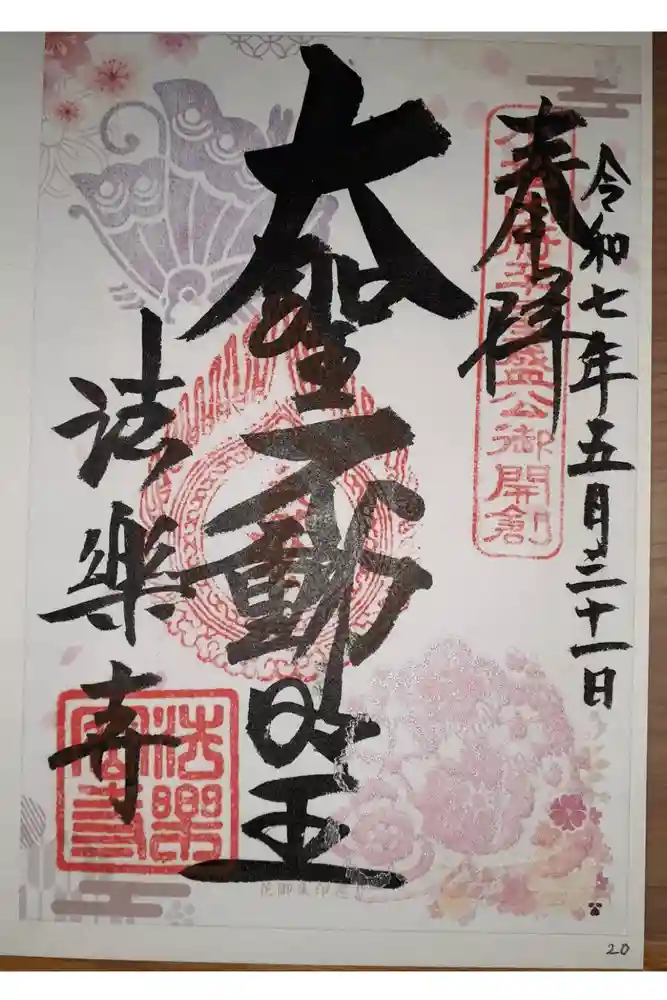 令和七年五月三十一日
奉拝
府平重盛公御開創
大聖不動明王
法樂寺
法樂
20